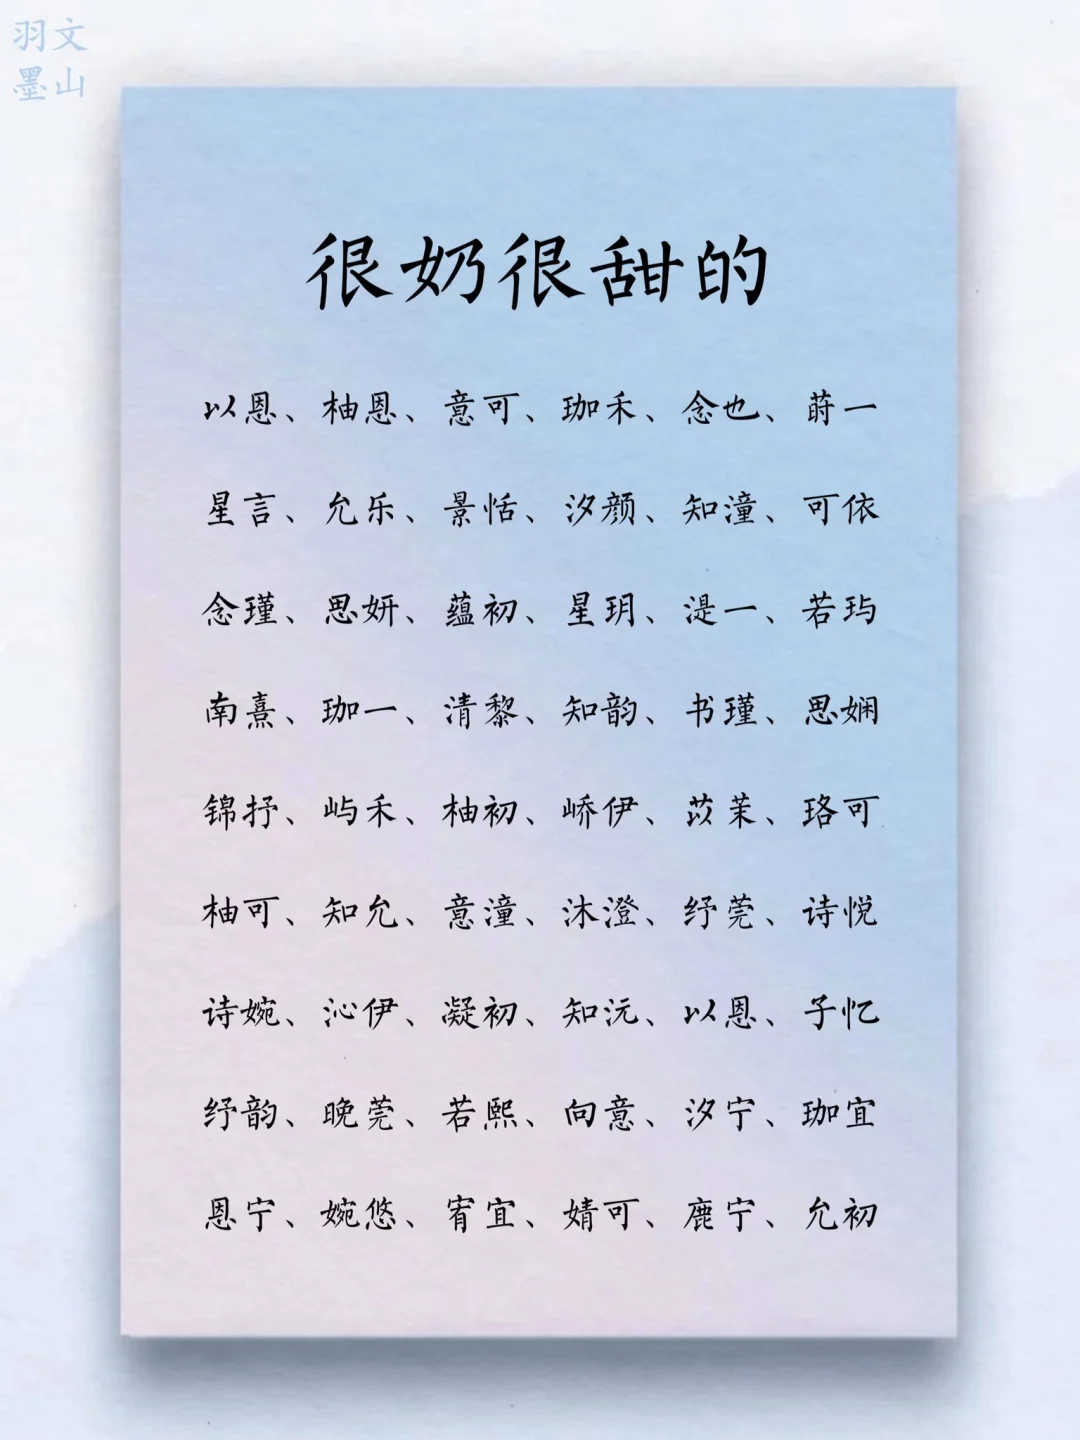 羽文
墨山
很奶很甜的
以恩、柚恩、意可、珈禾、念也、莳一
星言、允乐、景恬、汐颜、知潼、可依
念瑾、思妍、蕴初、星玥、湜一、若玙
南熹、珈一、清黎、知韵、书瑾、思娴
锦抒、屿禾、柚初、峤伊、苡茉、珞可
柚可、知允、意潼、沐澄、纾莞、诗悦
诗婉、沁伊、凝初、知沅、以恩、子忆
纾韵、晚莞、若熙、向意、汐宁、珈宜
恩宁、婉悠、宥宜、婧可、鹿宁、允初